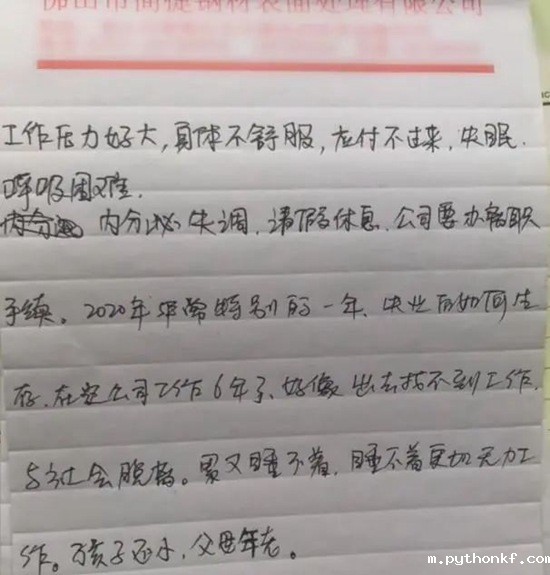 工作压力好大,身体不舒服,应付不过来,失眠.
呼吸困难.
内分泌失调,请假休息,公司要办辞职
手续。2020年非常特别的一年、失业后如何生
存,在这公司工作6年了、好像出去找不到工作,
与社会脱离。累又睡不着,睡不着更加无力工
作。孩子还小,父母年老。
m.pythonkf.com